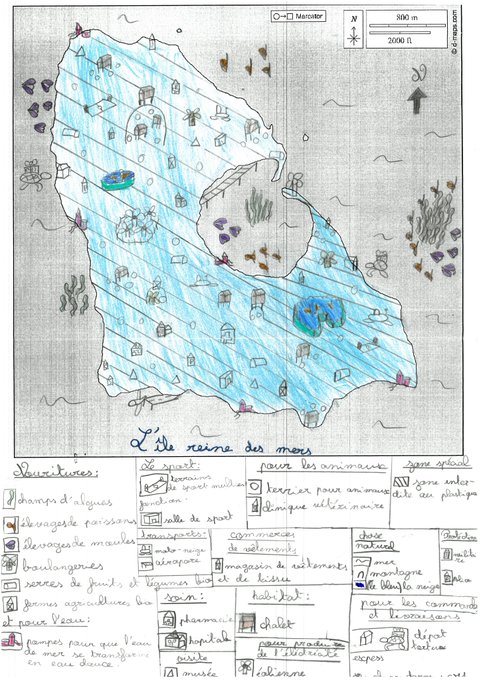 Mercator
N
800 m
2000 ft
© d-maps.com
N
L'île reine des mers
Nouritures:
champs d'algues
élevages de poissons
élevages de moules
boulangeries
serres de fruits et légumes bio
fermes agriculture bio
et pour l'eau:
pompes pour que l'eau
de mer se transforme
en eau douce
Le sport:
terrains
de sport multi
fonction:
salle de sport
transports:
moto-neige
aéropore
soin:
pharmacie
hopital
visite
musée
pour les animaux
terrier pour animaux
clinique vétérinaire
commerces
de vêtements
magasin de vêtements
et de tissu
habitat:
chalet
pour produire
de l'électricité
éolienne
zone spécial
zone inter
dite au plastique
chose
naturel
mer
montagne
le bleu la neige
pour les commande
et livraisons
dépot
tortue